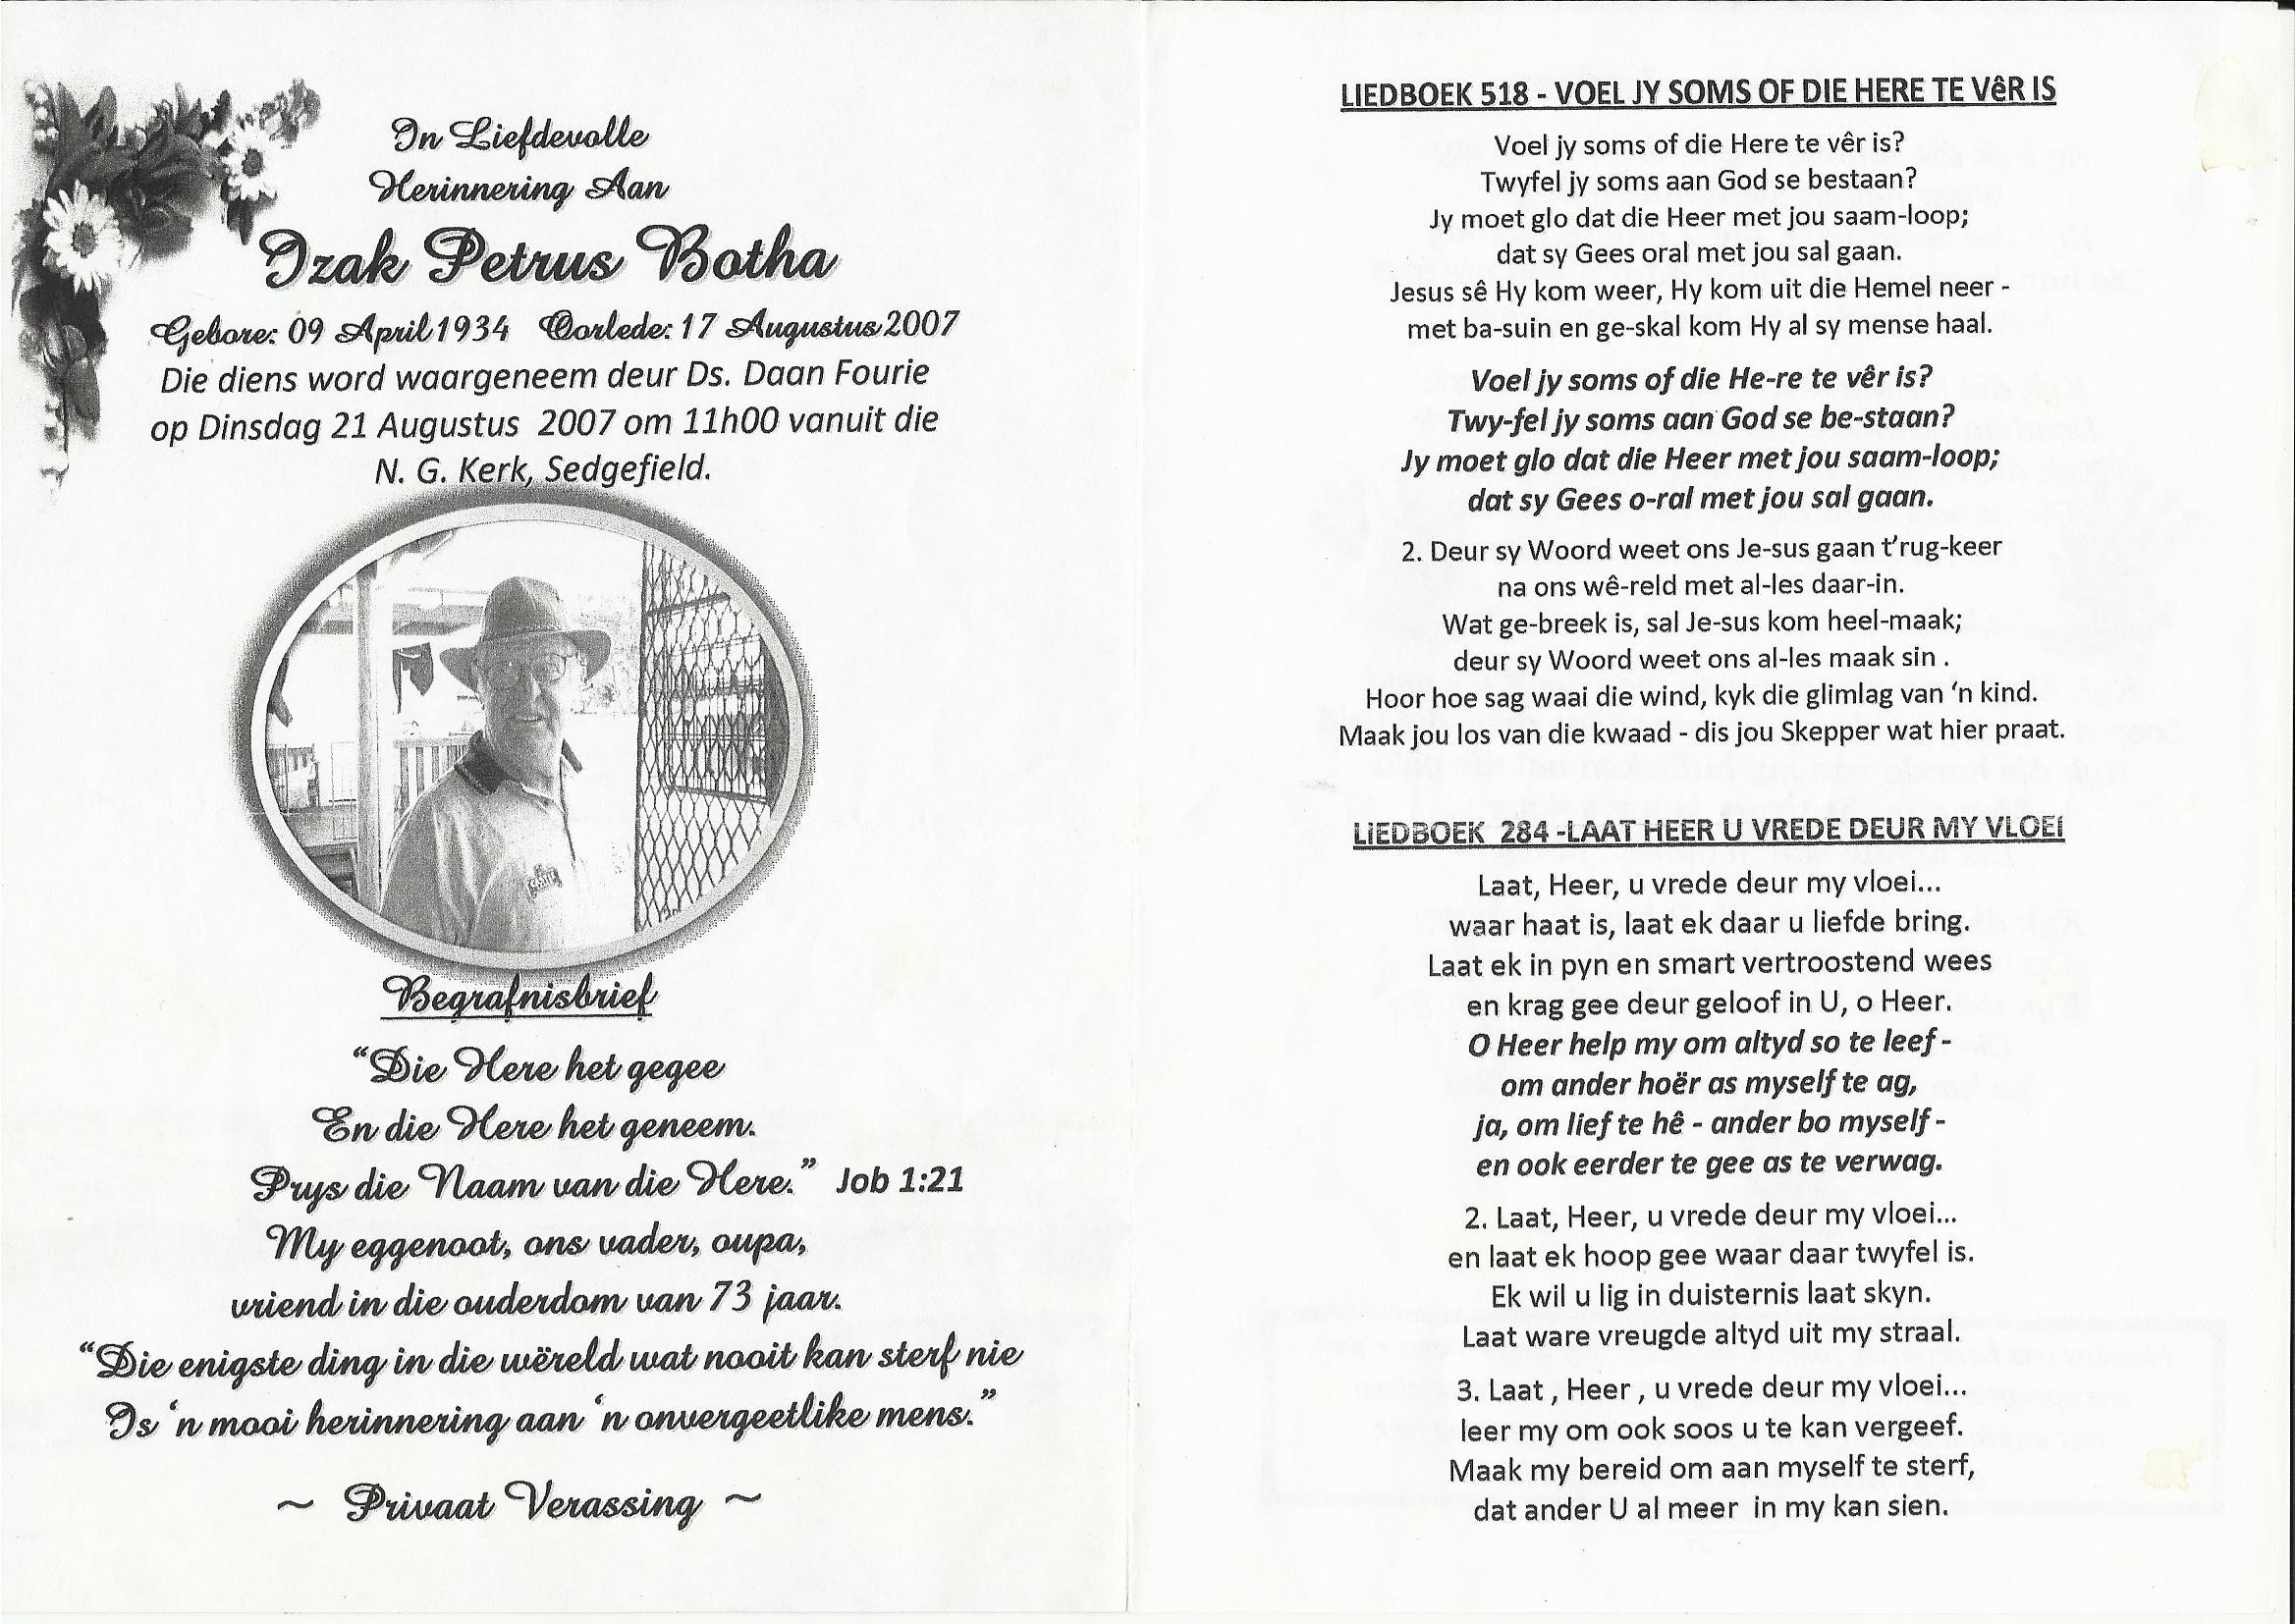 In Liefdevolle
Herinnering Aan
Izak Petrus Botha
Gebore: 09 April 1934 Oorlede: 17 Augustus 2007
Die diens word waargeneem deur Ds. Daan Fourie
op Dinsdag 21 Augustus 2007 om 11h00 vanuit die
N. G. Kerk, Sedgefield.
Begrafnisbrief
“Die Here het gegee
En die Here het geneem.
Prys die Naam van die Here.” Job 1:21
My eggenoot, ons vader, oupa,
vriend in die ouderdom van 73 jaar.
“Die enigste ding in die wëreld wat nooit kan sterf nie
Is ‘n mooi herinnering aan ‘n onvergeetlike mens.”
~ Privaat Verassing ~
LIEDBOEK 518 - VOEL JY SOMS OF DIE HERE TE VêR IS
Voel jy soms of die Here te vêr is?
Twyfel jy soms aan God se bestaan?
Jy moet glo dat die Heer met jou saam-loop;
dat sy Gees oral met jou sal gaan.
Jesus sê Hy kom weer, Hy kom uit die Hemel neer -
met ba-suin en ge-skal kom Hy al sy mense haal.
Voel jy soms of die He-re te vêr is?
Twy-fel jy soms aan God se be-staan?
Jy moet glo dat die Heer met jou saam-loop;
dat sy Gees o-ral met jou sal gaan.
2. Deur sy Woord weet ons Je-sus gaan t’rug-keer
na ons wê-reld met al-les daar-in.
Wat ge-breek is, sal Je-sus kom heel-maak;
deur sy Woord weet ons al-les maak sin .
Hoor hoe sag waai die wind, kyk die glimlag van ‘n kind.
Maak jou los van die kwaad - dis jou Skepper wat hier praat.
LIEDBOEK 284 -LAAT HEER U VREDE DEUR MY VLOEI
Laat, Heer, u vrede deur my vloei...
waar haat is, laat ek daar u liefde bring.
Laat ek in pyn en smart vertroostend wees
en krag gee deur geloof in U, o Heer.
O Heer help my om altyd so te leef -
om ander hoër as myself te ag,
ja, om lief te hê - ander bo myself -
en ook eerder te gee as te verwag.
2. Laat, Heer, u vrede deur my vloei...
en laat ek hoop gee waar daar twyfel is.
Ek wil u lig in duisternis laat skyn.
Laat ware vreugde altyd uit my straal.
3. Laat , Heer , u vrede deur my vloei...
leer my om ook soos u te kan vergeef.
Maak my bereid om aan myself te sterf,
dat ander U al meer in my kan sien.